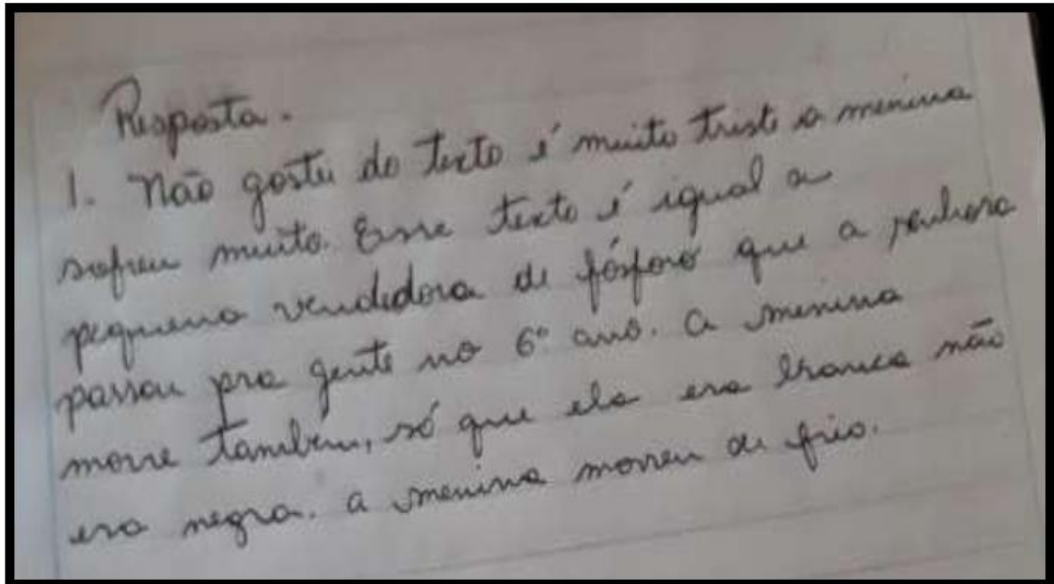 Resposta.
1. Não gostei do texto é muito triste a menina
sofreu muito. Esse texto é igual a
pequena vendedora de fósforo que a senhora
passou pra gente no 6º ano. A menina
morre também, só que ela era branca não
era negra. a menina morreu de frio.